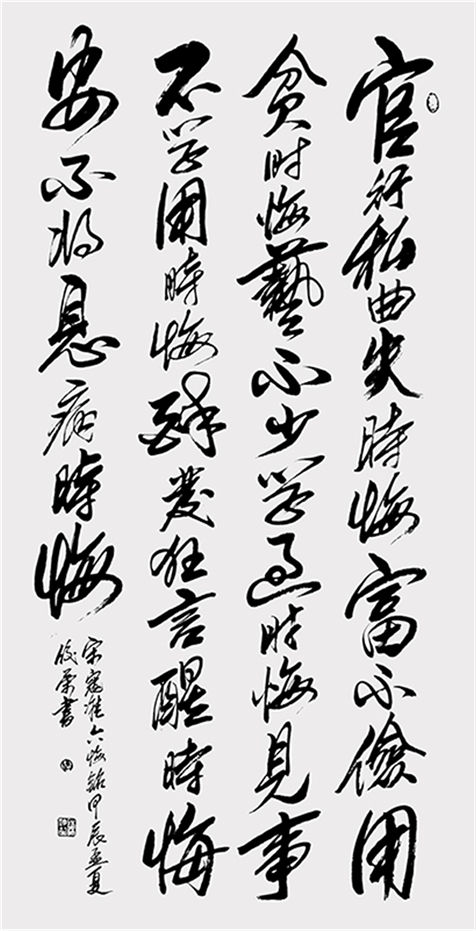 官行私曲失時悔富不儉用
貧时悔藝不少学過时悔見事
不学用時悔醉發狂言醒時悔
安不将息病時悔
宋寇准六悔銘甲辰孟夏
俊荣書